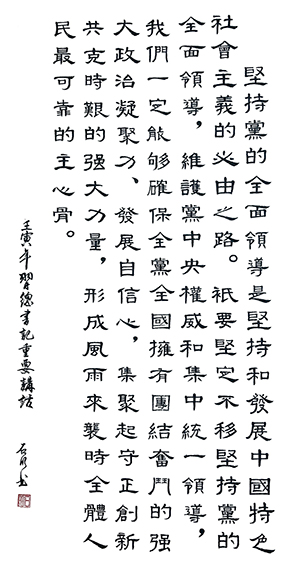 堅持黨的全面領導是堅持和發展中國特色
社會主義的必由之路。衹要堅定不移堅持黨的
全面領導，維護黨中央權威和集中統一領導，
我們一定能够確保全黨全國擁有團結奮鬥的强
大政治凝聚力、發展自信心，集聚起守正創新
共克時艱的强大力量，形成風雨來襲時全體人
民最可靠的主心骨。
壬寅年習總書記重要講話